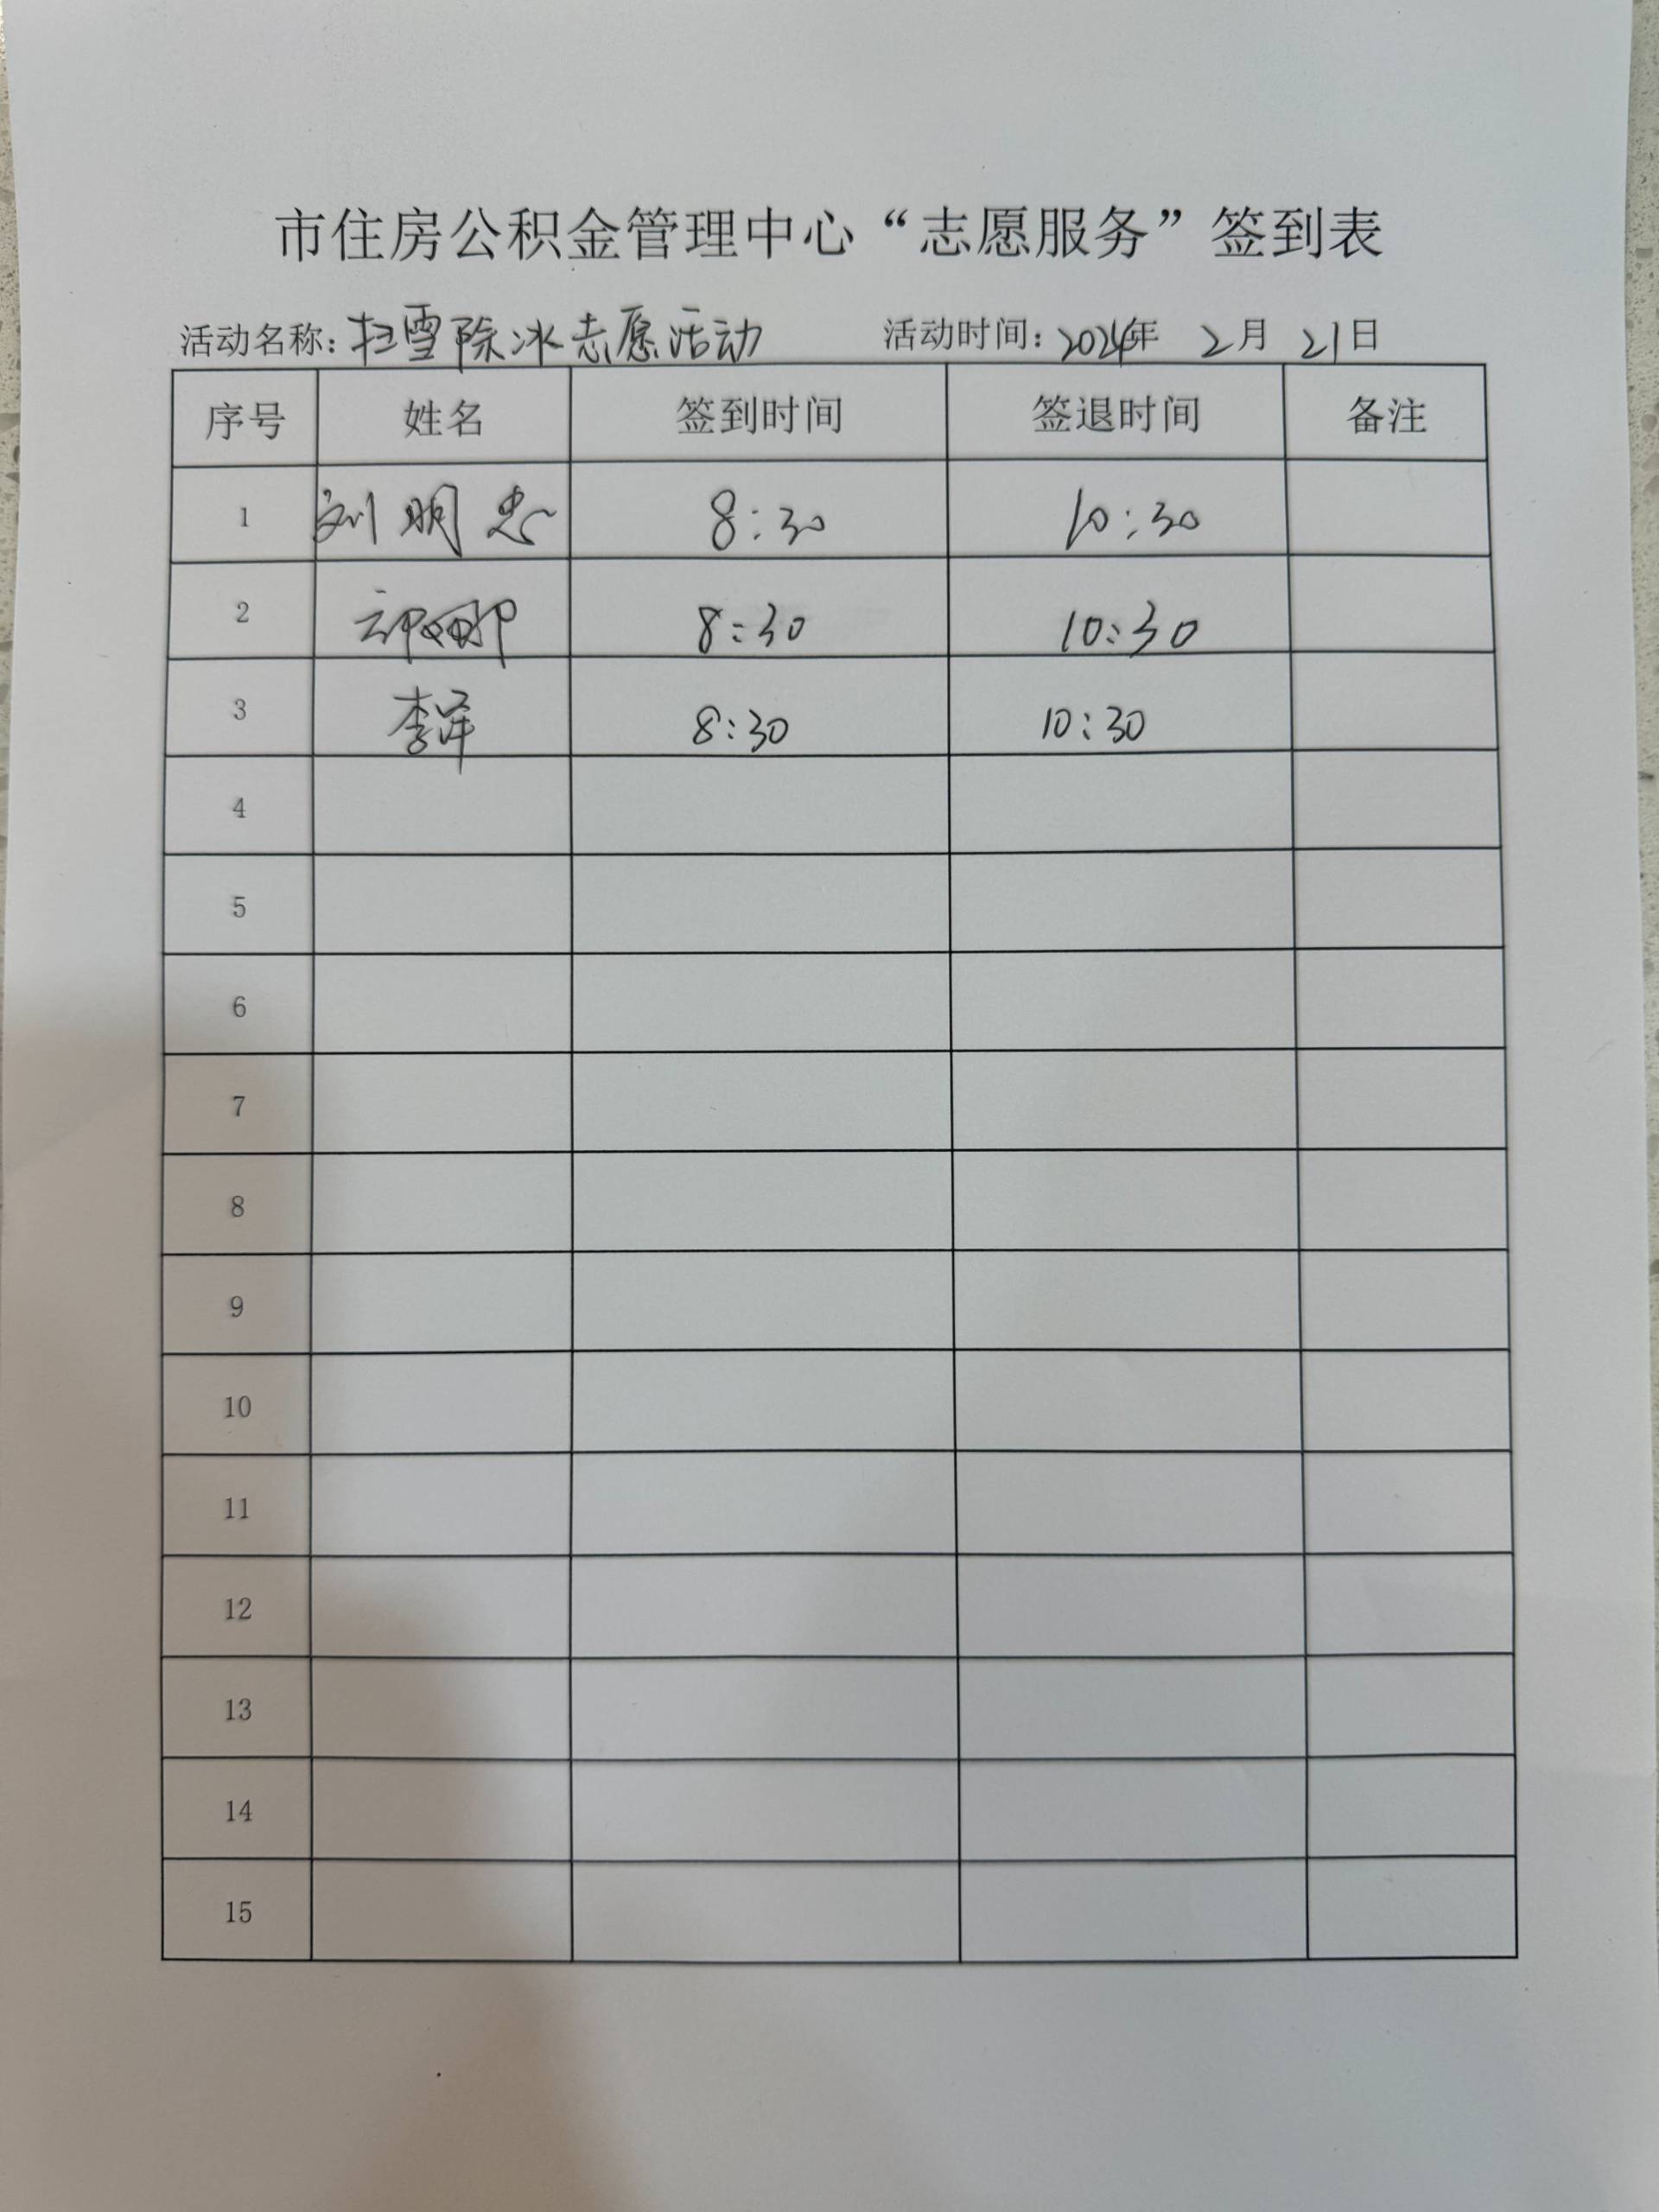 市住房公积金管理中心“志愿服务”签到表
活动名称：扫雪除冰志愿活动 活动时间：2024年 2月 21日
序号 姓名 签到时间 签退时间 备注
1 刘明忠 8:30 10:30
2 8:30 10:30
3 李洋 8:30 10:30
4
5
6
7
8
9
10
11
12
13
14
15